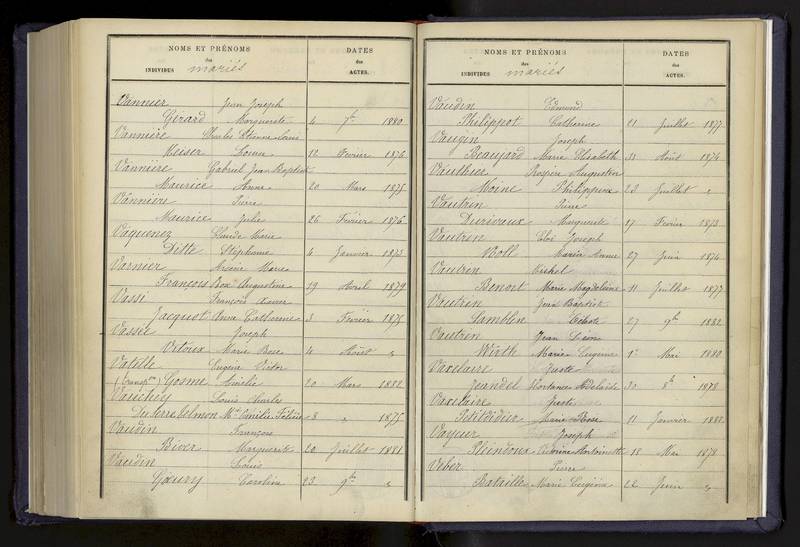 NOMS ET PRÉNOMS DATES
des des
INDIVIDUS mariés ACTES.
Vannier Jean Joseph
Girard Marguerite 4 7bre 1880
Vannière Charles Etienne Louis
Meiser Louise 12 Février 1876
Vannière Gabriel Jean Baptiste
Maurice Anne 20 Mars 1875
Vannière Pierre
Maurice Julie 26 Février 1876
Vaquenez Claude Marie
Ditte Stéphanie 6 Janvier 1873
Varnier Marie
François Rose Augustine 19 Avril 1879
Vassi François Xavier
Jacquot Anne Catherine 3 Février 1875
Vassée Joseph
Vitoux Marie Rose 4 Août "
Vatelle Eugène Victor
Gosme Amélie 20 Mars 1882
Vauchey Louis Charles
Emilie Félicie 8 " 1875
Vaudin François
Biver Marguerite 20 Juillet 1881
Vaudin Louis
Gaury Caroline 23 9bre "
NOMS ET PRÉNOMS DATES
des des
INDIVIDUS mariés ACTES.
Vaudin Edmond
Philippot Catherine 21 Juillet 1877
Vaugin Joseph
Beaujard Marie Elisabeth 31 Août 1874
Vauthier Prosper Augustin
Moine Philippine 23 Juillet "
Vautrin Pierre
Durivaux Marguerite 17 Février 1873
Vautrin Eloi Joseph
Noll Maria Anna 27 Juin 1874
Vautrin Michel
Benoit Marie Magdeleine 11 Juillet 1877
Vautrin Jean Baptiste
Samblin 27 9bre 1882
Vautrin Jean Léon
Wirth Marie Eugénie 1er Mai 1880
Vaxelaire Juste
Jeandel Hortense Adélaïde 30 8bre 1878
Vaxelaire Juste
Petitdidier Marie Rose 11 Janvier 1882
Vayeur Joseph
Antoinette 18 Mai 1878
Veber Pierre
Bataille Marie Eugénie 22 Juin "